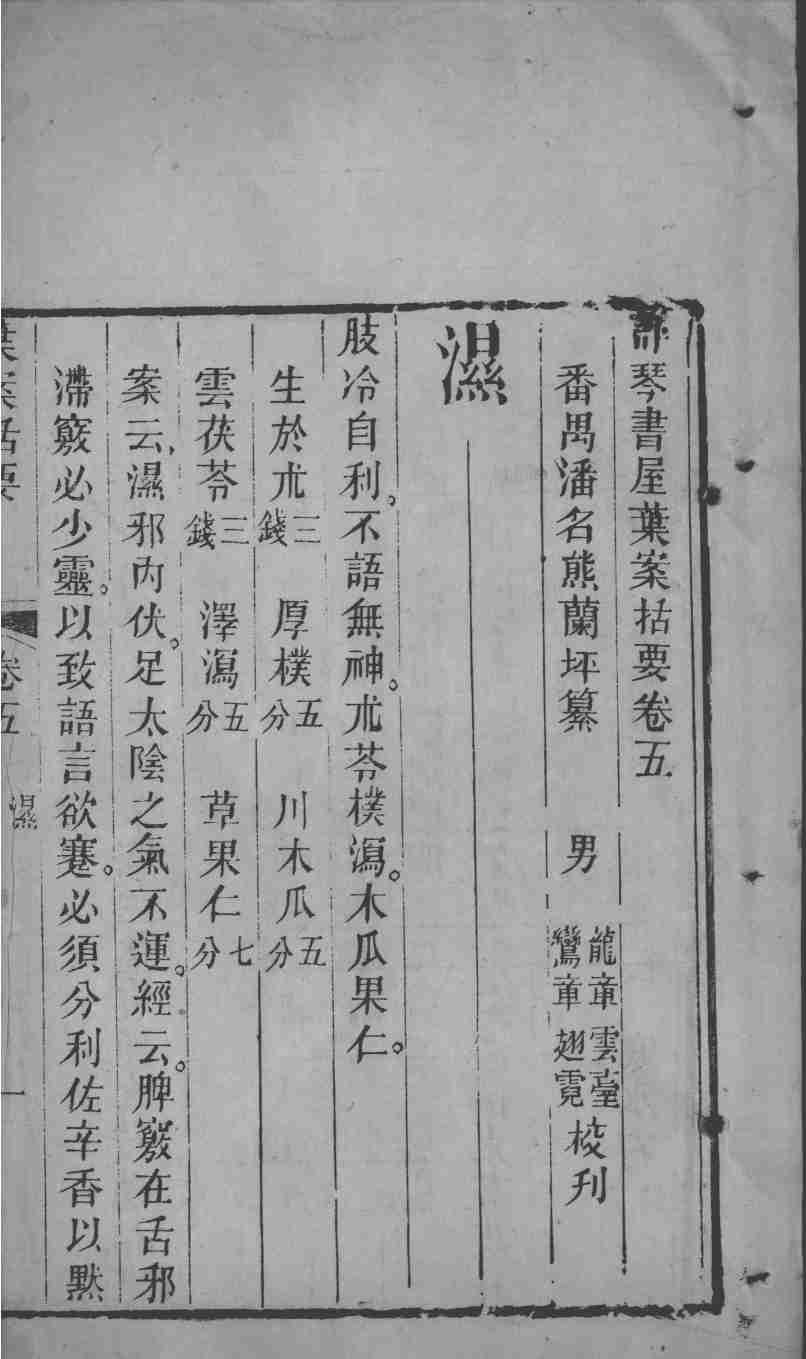 評琴書屋葉案括要卷五
番禺潘名熊蘭坪纂 男 龍章雲臺 鸞章翅霓 校刋
濕
肢冷自利。不語無神。朮苓樸瀉。木瓜果仁。
生於朮三錢 厚樸五分 川木瓜五分
雲茯苓三錢 澤瀉五分 草果仁七分
案云，濕邪內伏。足太陰之氣不運。經云。脾竅在舌邪
滯竅必少靈。以致語言欲蹇。必須分利佐辛香以默
葉案括要 卷五 濕 一